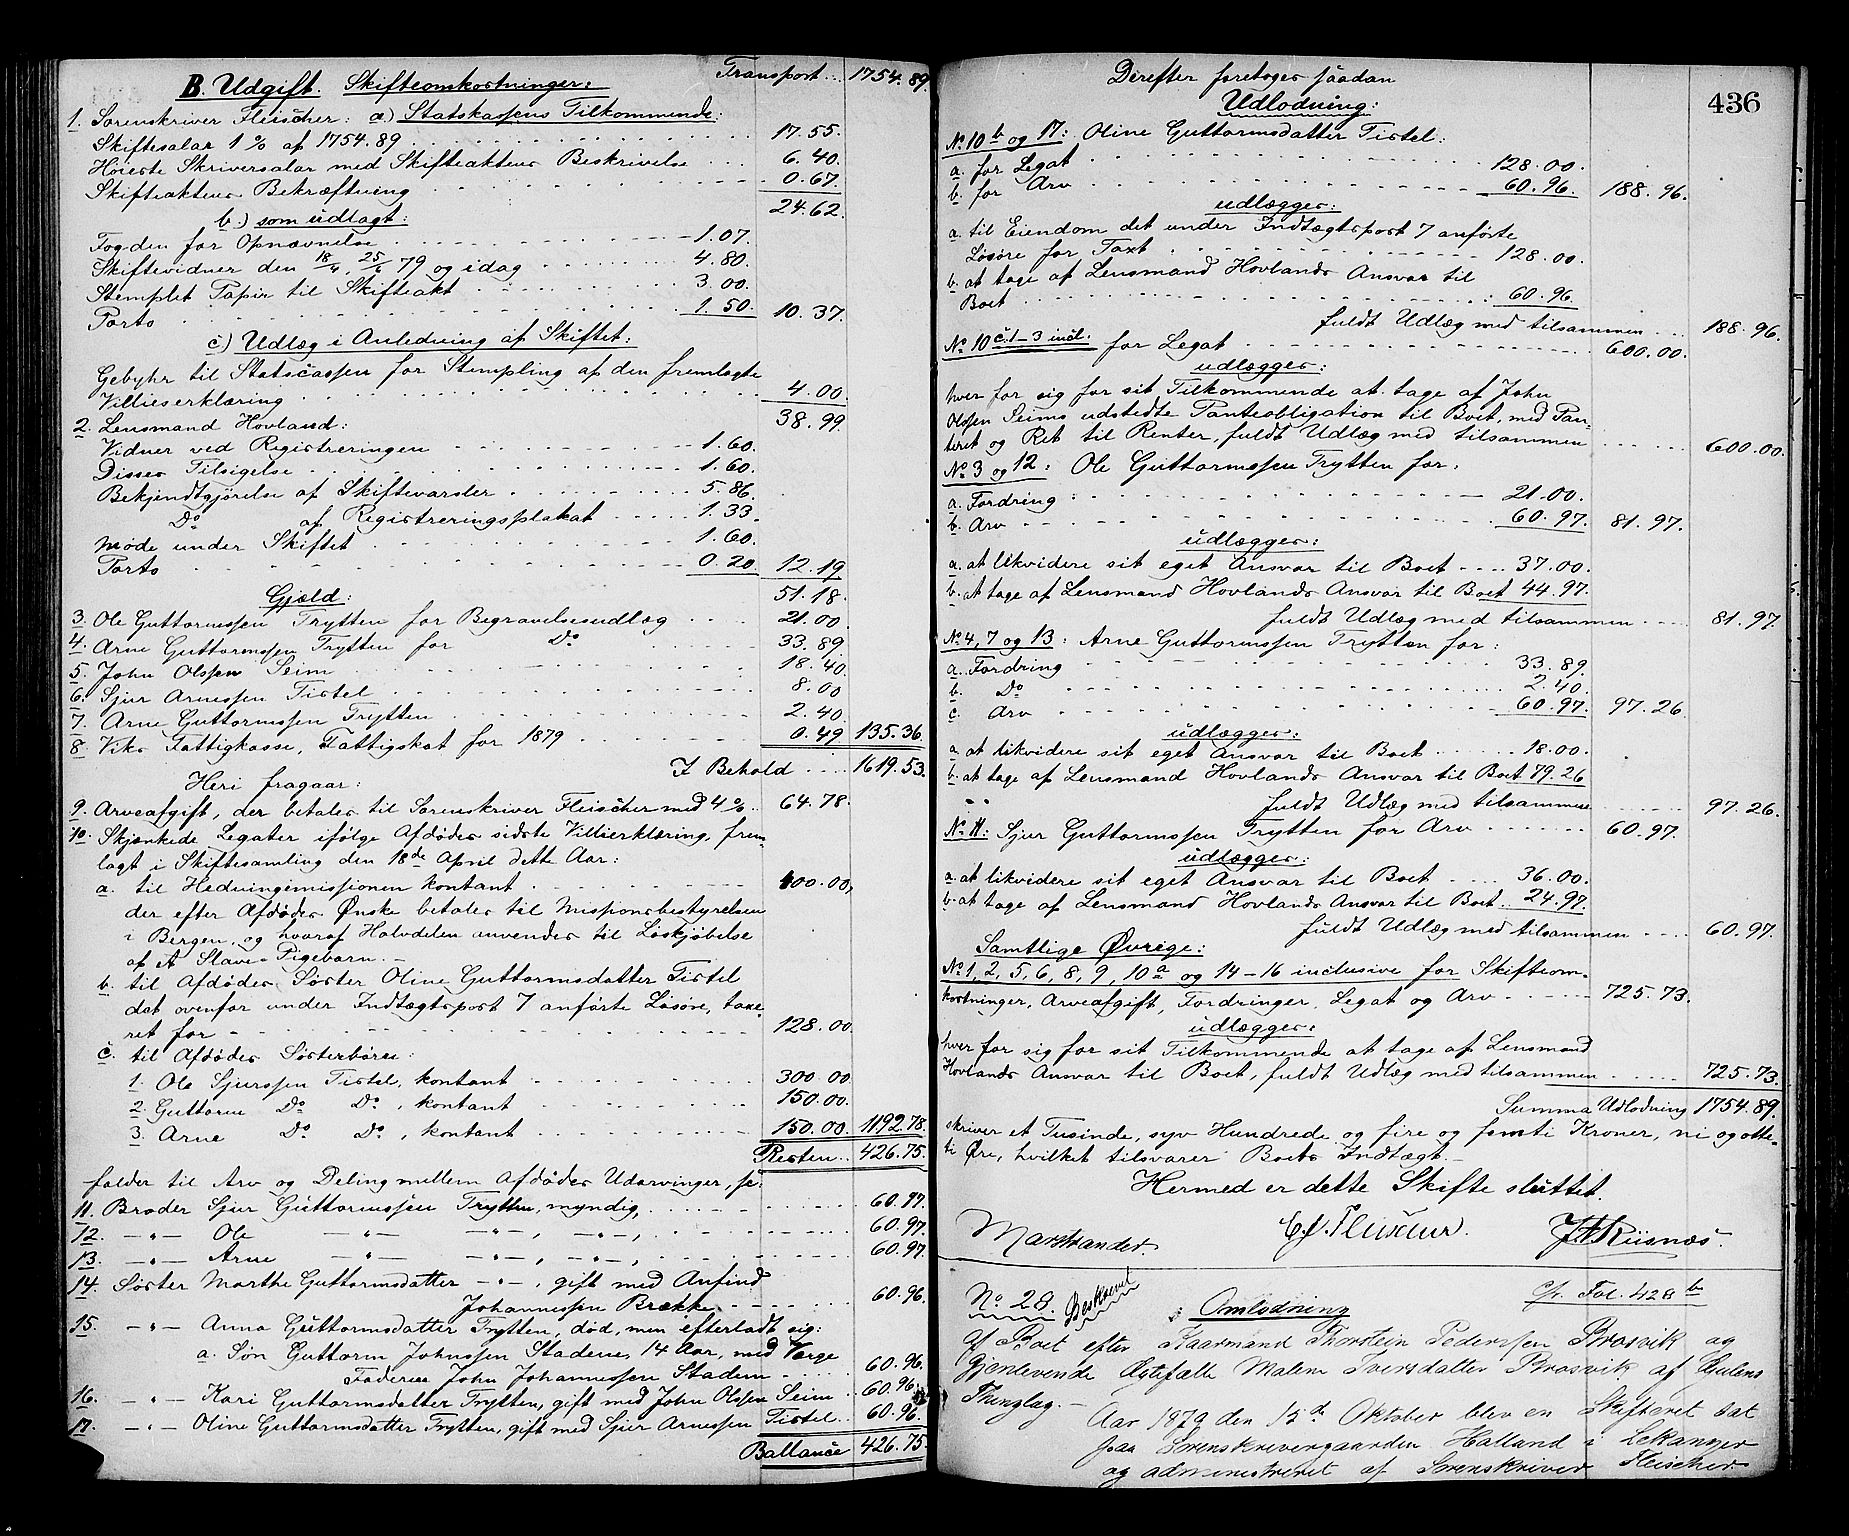 Transport... 1754.89.
B. Udgift. Skifteomkostninger:
1. Sorenskriver Fleischer: a) Statskassens Tilkommende:
Skiftesalar 1 % af 1754.89 17.55.
Høieste Skriversalar med Skifteaktens Beskrivelse 6.40.
Skifteaktens Bekræftning 0.67.
24.62.
b.) som udlagt:
Fogden for Opnævnelse 1.07.
Skiftevidner den 18/4, 25/6 79 og idag 4.80.
Stemplet Papir til Skifteakt 3.00.
Porto 1.50. 10.37.
c) Udlæg i Anledning af Skiftet:
Gebyhr til Statscassen for Stempling af den fremlagte
Villieserklæring 4.00.
38.99.
2. Lensmand Hovland:
Vidner ved Registreringen 1.60.
Disses Tilsigelse 1.60.
Bekjendtgjörelse af Skiftevarsler 5.86.
Do af Registreringsplakat 1.33.
Møde under Skiftet 1.60.
Porto 0.20 12.19
51.18.
Gjæld:
3. Ole Guttormssen Trytten for Begravelsesudlæg 21.00.
4. Arne Guttormssen Trytten for Do 33.89
5. John Olssen Seim 18.40.
6. Sjur Arnessen Tistel 8.00
7. Arne Guttormssen Trytten 2.40.
8. Viks Fattigkasse, Fattigskat for 1879 0.49 135.36.
I Behold .... 1619.53.
Heri fragaar:
9. Arveafgift, der betales til Sorenskriver Fleischer med 4 %.. 64.78.
10. Skjænkede Legater ifölge Afdødes sidste Villierklæring, frem-
lagt i Skiftesamling den 18de April dette Aar:
a. til Hedningemissionen kontant 400.00,
der efter Afdødes Ønske betales til Missionsbestyrelsen
i Bergen, og hvoraf Halvdelen anvendes til Løskjöbelse
af et Slave-Pigebarn. —
b. til Afdødes Søster Oline Guttormsdatter Tistel
det ovenfor under Indtægtspost 7 anførte Løsøre, taxe-
ret for 128.00.
c. til Afdødes Søsterbörn:
1. Ole Sjurssen Tistel, kontant 300.00.
2. Guttorm Do Do, kontant 150.00.
3. Arne Do Do, kontant 150.00. 1192.78.
Resten.. 426.75.
falder til Arv og Deling mellem Afdødes Udarvinger, se:
11. Broder Sjur Guttormssen Trytten, myndig, 60.97.
12. —"— Ole —"— —"—, —"—, 60.97.
13. —"— Arne " —"—, —"—, 60.97.
14. Søster Marthe Guttormsdatter —"—, gift med Anfind
Johannessen Brække 60.96.
15. —"— Anna Guttormsdatter Trytten, död, men efterladt sig:
a. Søn Guttorm Johnssen Stadem, 14 Aar, med Værge
Faderen John Johannessen Stadem 60.96.
16. —"— Kari Guttormsdatter Trytten, gift med John Olssen Seim .. 60.96.
17. —"— Oline Guttormsdatter Trytten, gift med Sjur Arnessen Tistel.. 60.96.
Ballance 426.75.
436
Derefter foretoges saadan
Udlodning:
No 10 b og 17: Oline Guttormsdatter Tistel:
a. for Legat 128.00.
b. for Arv 60.96. 188.96.
udlægges:
a. til Eiendom det under Indtægtspost 7 anførte
Løsöre for Taxt 128.00.
b. at tage af Lensmand Hovlands Ansvar til
Boet 60.96.
fuldt Udlæg med tilsammen .... 188.96.
No 10 c. 1-3 incl: for Legat 600.00.
udlægges:
hver for sig for sit Tilkommende at tage af John
Olssen Seims udstedte Panteobligation til Boet, med Pan-
teret og Ret til Renter, fuldt Udlæg med tilsammen 600.00.
No 3 og 12: Ole Guttormssen Trytten for:
a. Fordring 21.00.
b. Arv 60.97. 81.97.
udlægges:
a. at likvidere sit eget Ansvar til Boet .... 37.00.
b. at tage af Lensmand Hovlands Ansvar til Boet 44.97.
fuldt Udlæg med tilsammen .... 81.97.
No 4, 7 og 13: Arne Guttormssen Trytten for:
a. Fordring 33.89.
b. Do 2.40.
c. Arv 60.97. 97.26.
udlægges:
a. at likvidere sit eget Ansvar til Boet 18.00.
b. at tage af Lensmand Hovlands Ansvar til Boet 79.26
fuldt Udlæg med tilsammen 97.26.
No 11: Sjur Guttormssen Trytten for Arv 60.97.
udlægges:
a. at likvidere sit eget Ansvar til Boet 36.00.
b. at tage af Lensmand Hovlands Ansvar til Boet.. 24.97.
fuldt Udlæg med tilsammen .... 60.97.
Samtlige Øvrige:
No 1, 2, 5, 6, 8, 9, 10 a og 14-16 inclusive for Skifteom-
kostninger, Arveafgift, Fordringer, Legat og Arv 725.73.
udlægges:
hver for sig for sit Tilkommende at tage af Lensmand
Hovlands Ansvar til Boet, fuldt Udlæg med tilsammen 725.73.
Summa Udlodning 1754.89.
skriver et Tusinde, syv Hundrede og fire og femti Kroner, ni og otte-
ti Øre, hvilket tilsvarer Boets Indtægt. —
Hermed er dette Skifte sluttet.
Marstrander. Fleischer. Riisnæs.
Cfr. Fol. 428 b
No 28. Beskrevet
Omlodning
af Boet efter Gaarmand Thorstein Pederssen Brosvik og
Gjenlevende Ægtefælle Malene Iversdatter Brosvik af Gulens
Thinglag. —
Aar 1879 den 15de Oktober blev en Skifteret sat
paa Sorenskrivergaarden Halland i Lekanger
og administreret af Sorenskriver Fleischer